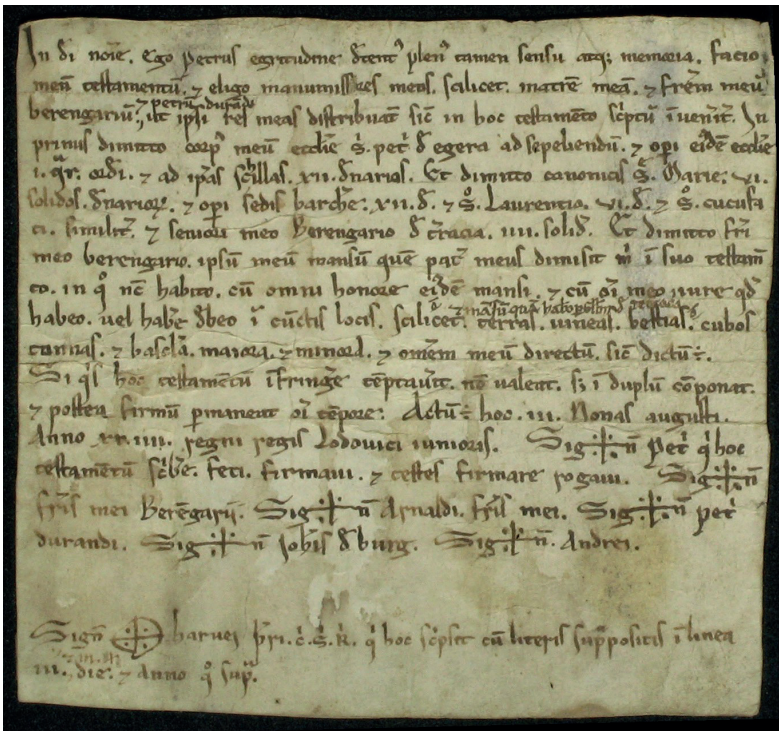 In dī noīe. Ego Petrus egritudine detent᾽ plen᾽ tamen sensu atq; memoria. facio
meū testamentū. ⁊ eligo manumissores meos. scilicet. matrē meā. ⁊ frēm meū
⁊ petrū durādū
berengariū. ut ipsi res meas distribuāt sic̄ in hoc testamēto sc̄ptū īuenerit̄. In
primis dimitto corp᾽ meū eccl̄ie s̄. pet̄ d̄ egera ad sepeliendū. ⁊ op̄i ei᾽dē eccl̄ie
i. q̄r. ordī. ⁊ ad ip̄as schillas. xii. d̄narios. Et dimitto canonicis S̄. Marie. vi.
solidos. d̄narior. ⁊ op̄i sedis barch̄. xii. d̄. ⁊ S̄. Laurentio. vi. d̄. ⁊ S̄. cucufa
ti. similit̄. ⁊ seniori meo Berengario d̄ t̄racia. iiii. solid̄. Et dimitto fr̄i
meo berengario. ipsū meū mansū quē pat̄ meus dimisit m̄ ī suo testam̄
to. in q᾽ nc̄ habito. cū omni honore ei᾽dē mansi. ⁊ cū oī meo iure qd̄
habeo. vel hab̄e d̄beo ī cūctis locis. scilicet. terras. uineas. bestias. cubos
tunnas. ⁊ bascl̄a. maiora. ⁊ minora. ⁊ om̄em meū directū. sic̄ dictū ÷.
Si q̄s hoc testamentū īfrinḡe tēptau̅it. nō valeat. s; ī duplū cōponat.
⁊ postea firmū p̄maneat oī tēpore. Actū ÷ hoc. iii. Nonas augusti.
Anno xx.iiii. regni regis Lodouici iunioris. Sig+n̄ Pet̄ q̄ hoc
testamentū sc̄b̄e feci. firmaui. ⁊ testes firmare rogaui. Sig+n̄
fr̄is mei Berēgarii. Sig+n̄ Arnaldi. fr̄is mei. Sig+n̄ pet̄
durandi. Sig+n̄ Ioh̄is d̄ burg. Sig+n̄. Andrei.
Sign̄ + p̄bri. q̄ hoc sc̄psit cū literis sup̄positis ī linea
iii. die. ⁊ anno q᾽ sup̄.